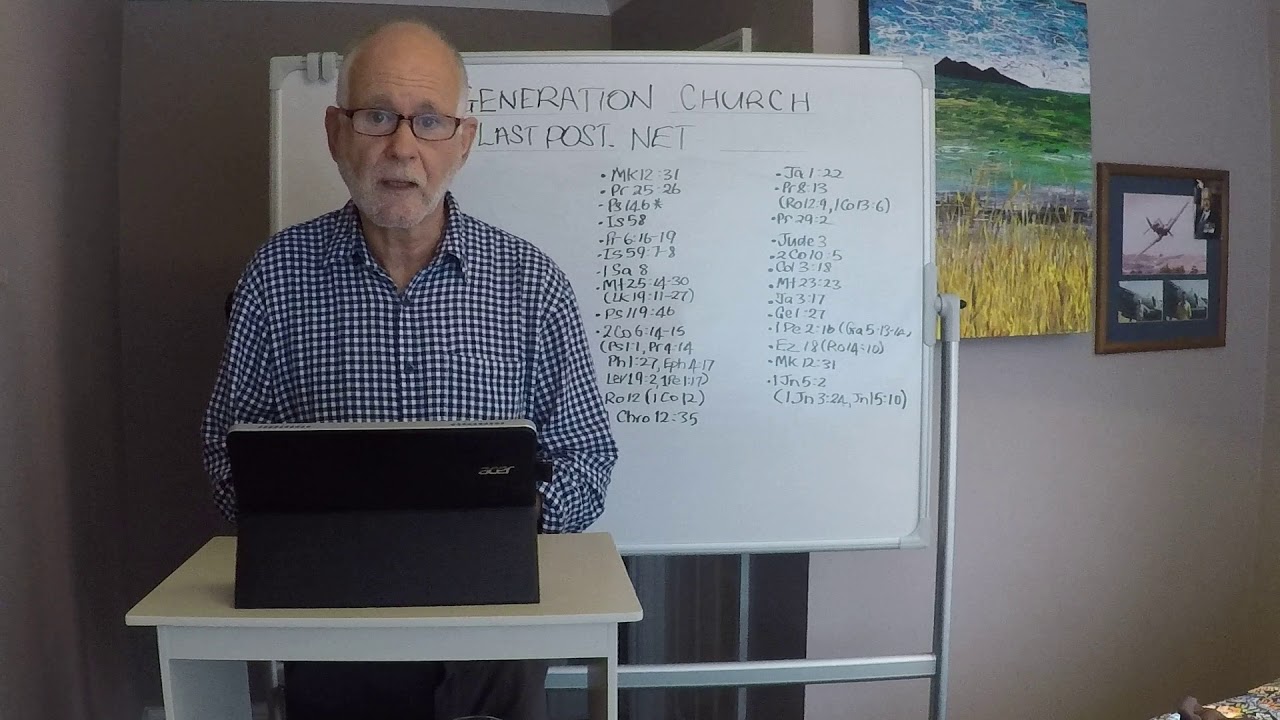 GENERATION CHURCH
LASTPOST. NET
• Mk 12:31
• Pr 25:26
• Ps 146*
• Is 58
• Pr 6:16-19
• Is 59:7-8
• 1 Sa 8
• Mt 25:14-30
(Lk 19:11-27)
• Ps 119:46
• 2 Co 6:14-15
(Ps 1:1, Pr 4:14
Ph 1:27, Eph 4:17
Lev 19:2, 1 Pe 1:17)
Ro 12 (1 Co 12)
1 Chro 12:35
• Ja 1:22
• Pr 8:13
(Ro 12:9, 1 Co 13:6)
• Pr 29:2
• Jude 3
• 2 Co 10:5
• Col 3:18
• Mt 23:23
• Ja 3:17
• Ge 1:27
• 1 Pe 2:16 (Ga 5:13-14,
• Ez 18 (Ro 14:10)
• Mk 12:31
• 1 Jn 5:2
(1 Jn 3:24, Jn 15:10)
acer